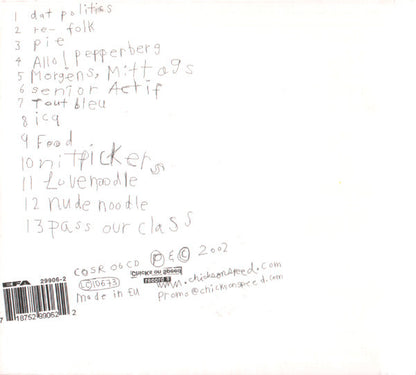 1 dat politics
2 re- folk
3 pie
4 Allo! pepperberg
5 Morgens, Mittags
6 senior Actif
7 Tout bleu
8 icq
9 Food
10 nitpickers
11 Lovenoodle
12 nude noodle
13 pass our class
COSR 06 CD P & © 2002
EFA 29906-2
LC 10673
chicks on speed records
www.chicksonspeed.com
made in EU
promo@chicksonspeed.com
7 18752 99062 2